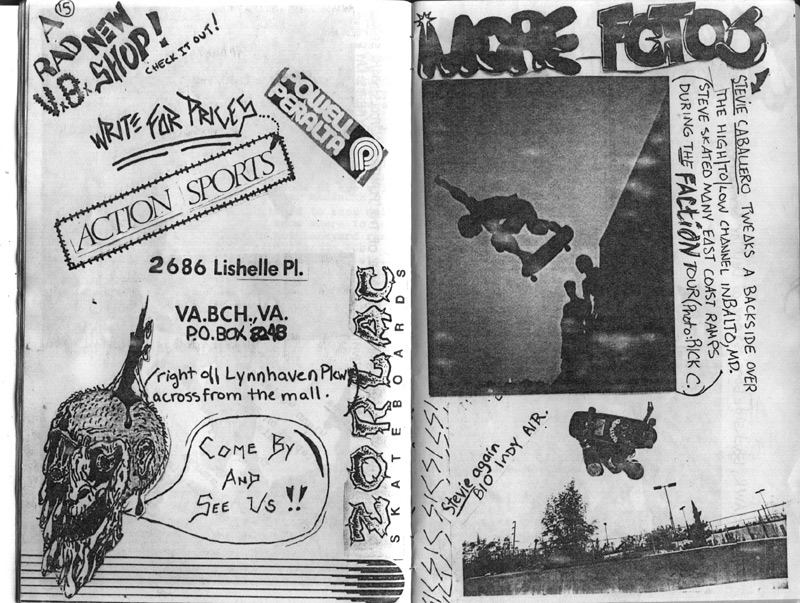 15
A
RAD NEW
V.B. SHOP!
CHECK IT OUT!
WRITE FOR PRICES
POWELL
PERALTA
ACTION SPORTS
2686 Lishelle Pl.
VA.BCH.,VA.
P.O. BOX 8248
right off Lynnhaven Pkwy
across from the mall.
COME BY
AND
SEE US!!
ZORLAC
SKATEBOARDS
MORE FOTOS
STEVIE CABALLERO TWEAKS A BACKSIDE OVER
THE HIGH/TO/LOW CHANNEL IN BALTO, MD.
STEVE SKATED MANY EAST COAST RAMPS
DURING THE FACTION TOUR (Photo: RICK C.)
Stevie again
BIO INDY AIR.